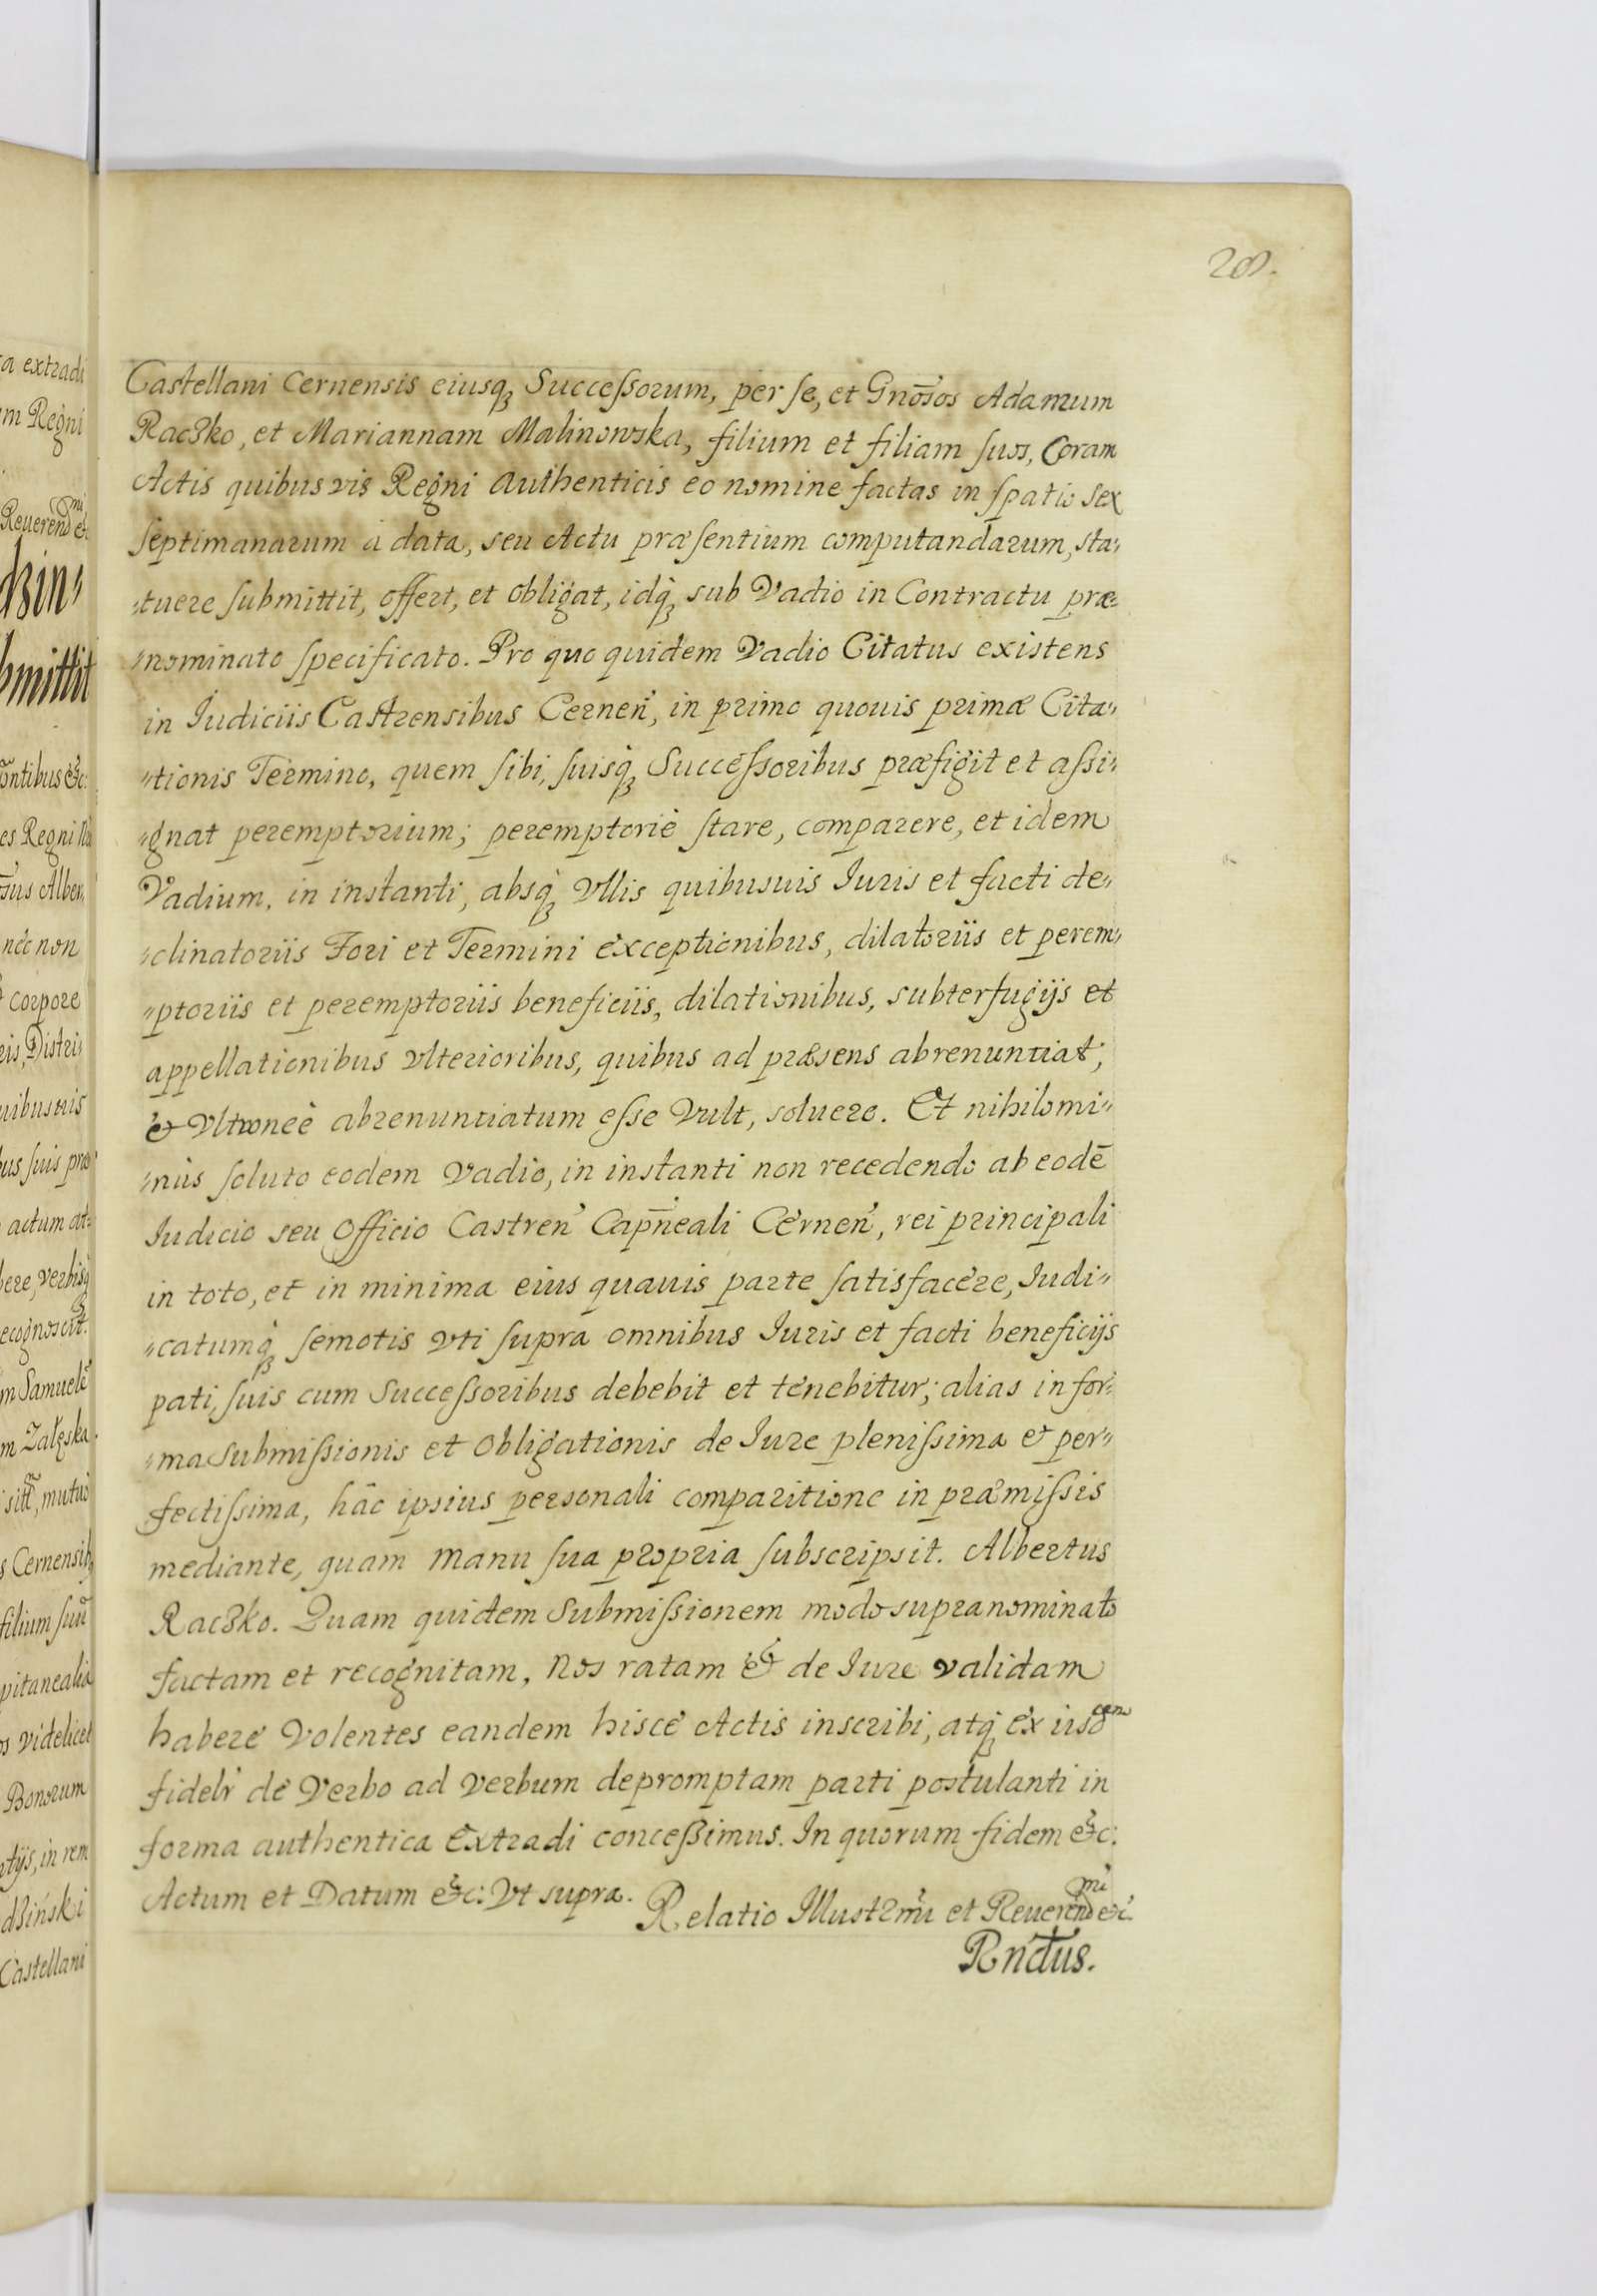 200.
Castellani Cernensis eiusq₃ Successorum, per se, et Gnōsos Adamum
Raczko, et Mariannam Malinowska, filium et filiam suos, Coram
Actis quibusvis Regni authenticis eo nomine factas in spatio sex
septimanarum à data, seu Actu præsentium computandarum, sta„
„tuere submittit, offert, et obligat, idq₃ sub Vadio in Contractu præ„
„nominato specificato. Pro quo quidem Vadio Citatus existens
in Iudiciis Castrensibus Cernen̄, in primo quovis primæ Cita„
„tionis Termino, quem sibi, suisq₃ Successoribus præfigit et assi„
„gnat peremptorium; peremptoriè stare, comparere, et idem
Vadium, in instanti, absq₃ Vllis quibusuis Iuris et facti de„
„clinatoriis Fori et Termini exceptionibus, dilatoriis et perem„
„ptoriis et peremptoriis beneficiis, dilationibus, subterfugijs et
appellationibus vlterioribus, quibus ad præsens abrenuntiat,
& Vltroneè abrenuntiatum esse Vult, soluere. Et nihilomi„
„nùs soluto eodem Vadio, in instanti non recedendo ab eodē
Iudicio seu Officio Castren̄ Cap̄neali Cernen̄, rei principali
in toto, et in minima eius quauis parte satisfacere, Iudi„
„catumq₃ semotis vti supra omnibus Iuris et facti beneficijs
pati, suis cum Successoribus debebit et tenebitur; alias in for„
„ma submissionis et obligationis de Iure plenissima et per„
fectissima, hâc ipsius personali comparitione in præmissis
mediante, quam manu sua propria subscripsit. Albertus
Raczko. Quam quidem Submissionem modo supranominato
factam et recognitam, Nos ratam & de Iure validam
habere Volentes eandem hisce Actis inscribi, atq₃ ex iisd<sup>em</sup>
fideli de Verbo ad Verbum depromptam parti postulanti in
forma authentica Extradi concessimus. In quorum fidem &c:
Actum et Datum &c: Vt supra.
Relatio Illustrm̄i et Reuerend<sup>mi</sup> &c
Rnctus.